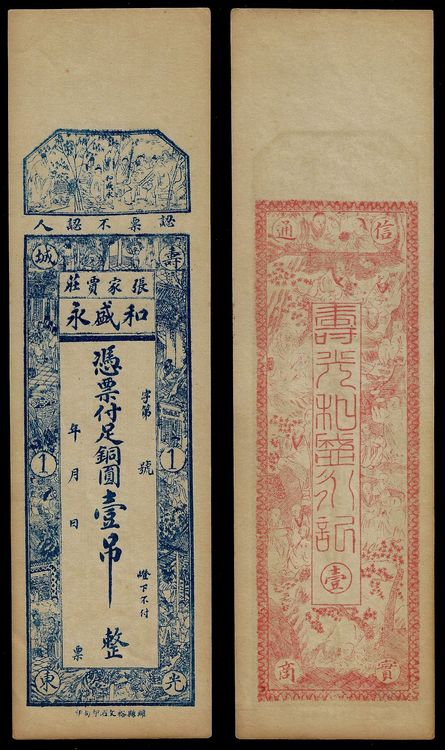 認票不認人
壽城
張家賈莊
和盛永
字第 號
憑票付足銅圓壹吊整
年月日
燈下不付
票
1 1
光東
信通
壽光和盛永記
壹
實商